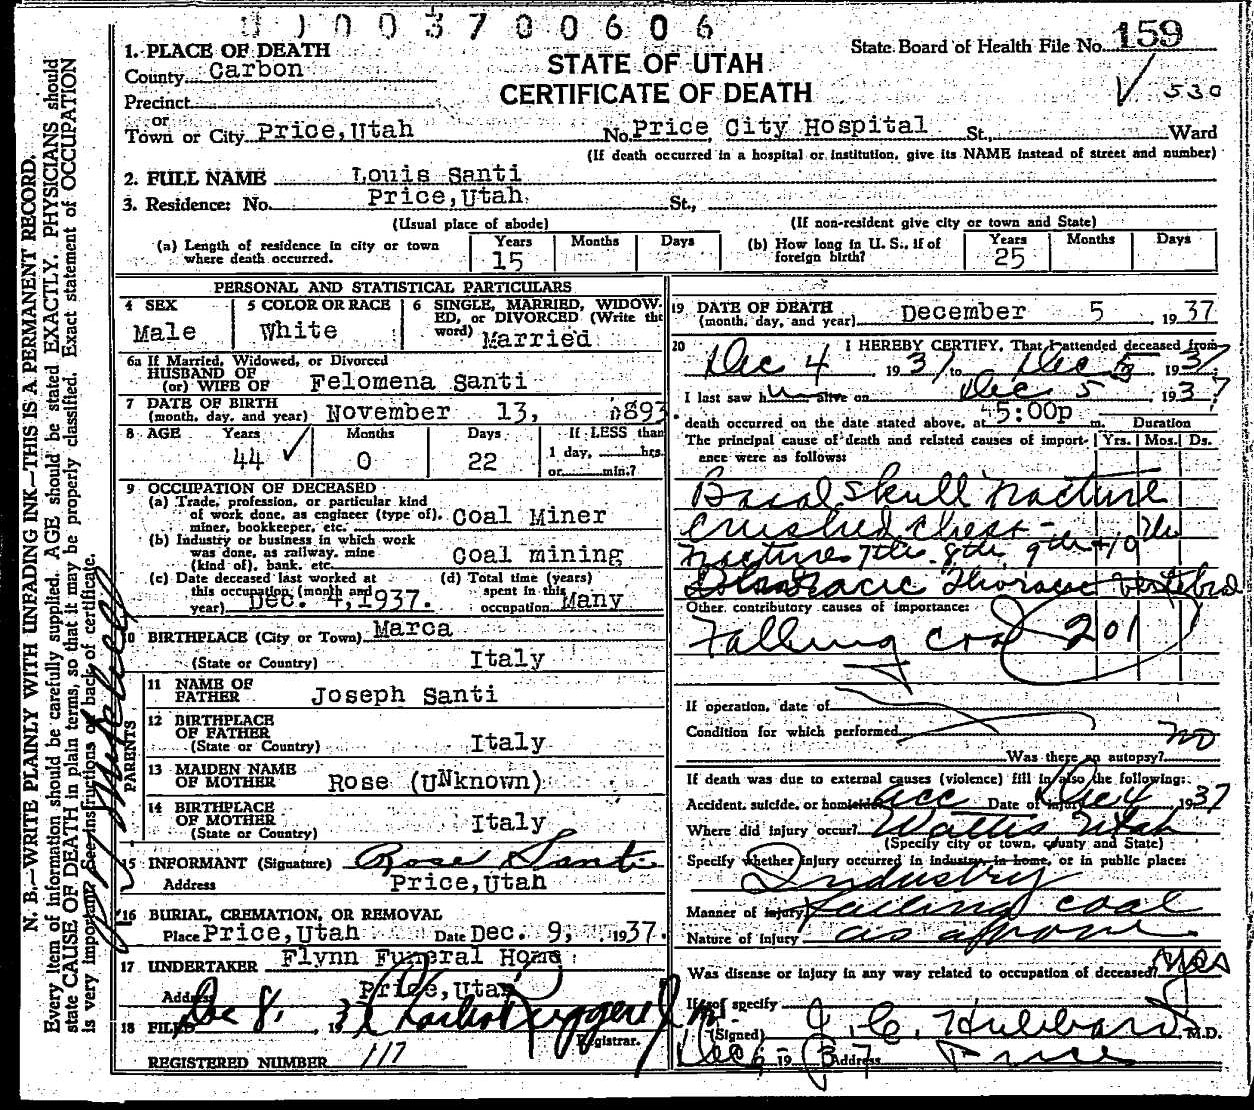 0 1 0 0 3 7 0 0 6 0 6
1. PLACE OF DEATH
County Carbon
Precinct
or
Town or City Price, Utah
STATE OF UTAH
CERTIFICATE OF DEATH
State Board of Health File No. 159
530
No. Price City Hospital St., Ward
(If death occurred in a hospital or institution, give its NAME instead of street and number)
2. FULL NAME Louis Santi
3. Residence: No. Price, Utah. St.,
(Usual place of abode) (If non-resident give city or town and State)
(a) Length of residence in city or town where death occurred. Years 15 Months Days
(b) How long in U. S., if of foreign birth? Years 25 Months Days
PERSONAL AND STATISTICAL PARTICULARS
4 SEX Male
5 COLOR OR RACE White
6 SINGLE, MARRIED, WIDOWED, or DIVORCED (Write the word) Married
6a If Married, Widowed, or Divorced
HUSBAND OF
(or) WIFE OF Felomena Santi
7 DATE OF BIRTH
(month, day, and year) November 13, 1893.
8 AGE Years 44 Months 0 Days 22 If LESS than 1 day, hrs. or min.?
9 OCCUPATION OF DECEASED
(a) Trade, profession, or particular kind
of work done, as engineer (type of),
miner, bookkeeper, etc. Coal Miner
(b) Industry or business in which work
was done, as railway, mine
(kind of), bank, etc. Coal mining
(c) Date deceased last worked at
this occupation (month and
year) Dec. 4, 1937.
(d) Total time (years)
spent in this
occupation Many
10 BIRTHPLACE (City or Town) Marca
(State or Country) Italy
PARENTS
11 NAME OF
FATHER Joseph Santi
12 BIRTHPLACE
OF FATHER
(State or Country) Italy
13 MAIDEN NAME
OF MOTHER Rose (UNknown)
14 BIRTHPLACE
OF MOTHER
(State or Country) Italy
15 INFORMANT (Signature) Rose Santi
Address Price, Utah
16 BURIAL, CREMATION, OR REMOVAL
Place Price, Utah Date Dec. 9, 1937.
17 UNDERTAKER Flynn Funeral Home
Address Price, Utah
18 FILED Dec 8, 193
Registrar.
REGISTERED NUMBER 117
19 DATE OF DEATH
(month, day, and year) December 5 1937
20 I HEREBY CERTIFY, That I attended deceased from
Dec 4 1937 to Dec 5 1937
I last saw h alive on Dec 5 1937
death occurred on the date stated above, at 5:00p m. Duration
The principal cause of death and related causes of importance were as follows: Yrs. Mos. Ds.
Basal skull fracture
crushed chest -
fractures 7th 8th 9th + 10 th
Thoracic vertebrae
Other contributory causes of importance:
Falling coal 201
If operation, date of
Condition for which performed
Was there an autopsy? no
If death was due to external causes (violence) fill in also the following:
Accident, suicide, or homicide acc Date of injury Dec 4 1937
Where did injury occur? Wattis, Utah
(Specify city or town, county and State)
Specify whether injury occurred in industry, in home, or in public place:
Industry
Manner of injury falling coal
Nature of injury as above
Was disease or injury in any way related to occupation of deceased? yes
If so, specify
(Signed) J. C. Hubbard M.D.
Dec 6 - 1937 Address Price
N. B.—WRITE PLAINLY WITH UNFADING INK—THIS IS A PERMANENT RECORD.
Every item of information should be carefully supplied. AGE should be stated EXACTLY. PHYSICIANS should
state CAUSE OF DEATH in plain terms, so that it may be properly classified. Exact statement of OCCUPATION
is very important. See instructions on back of certificate.